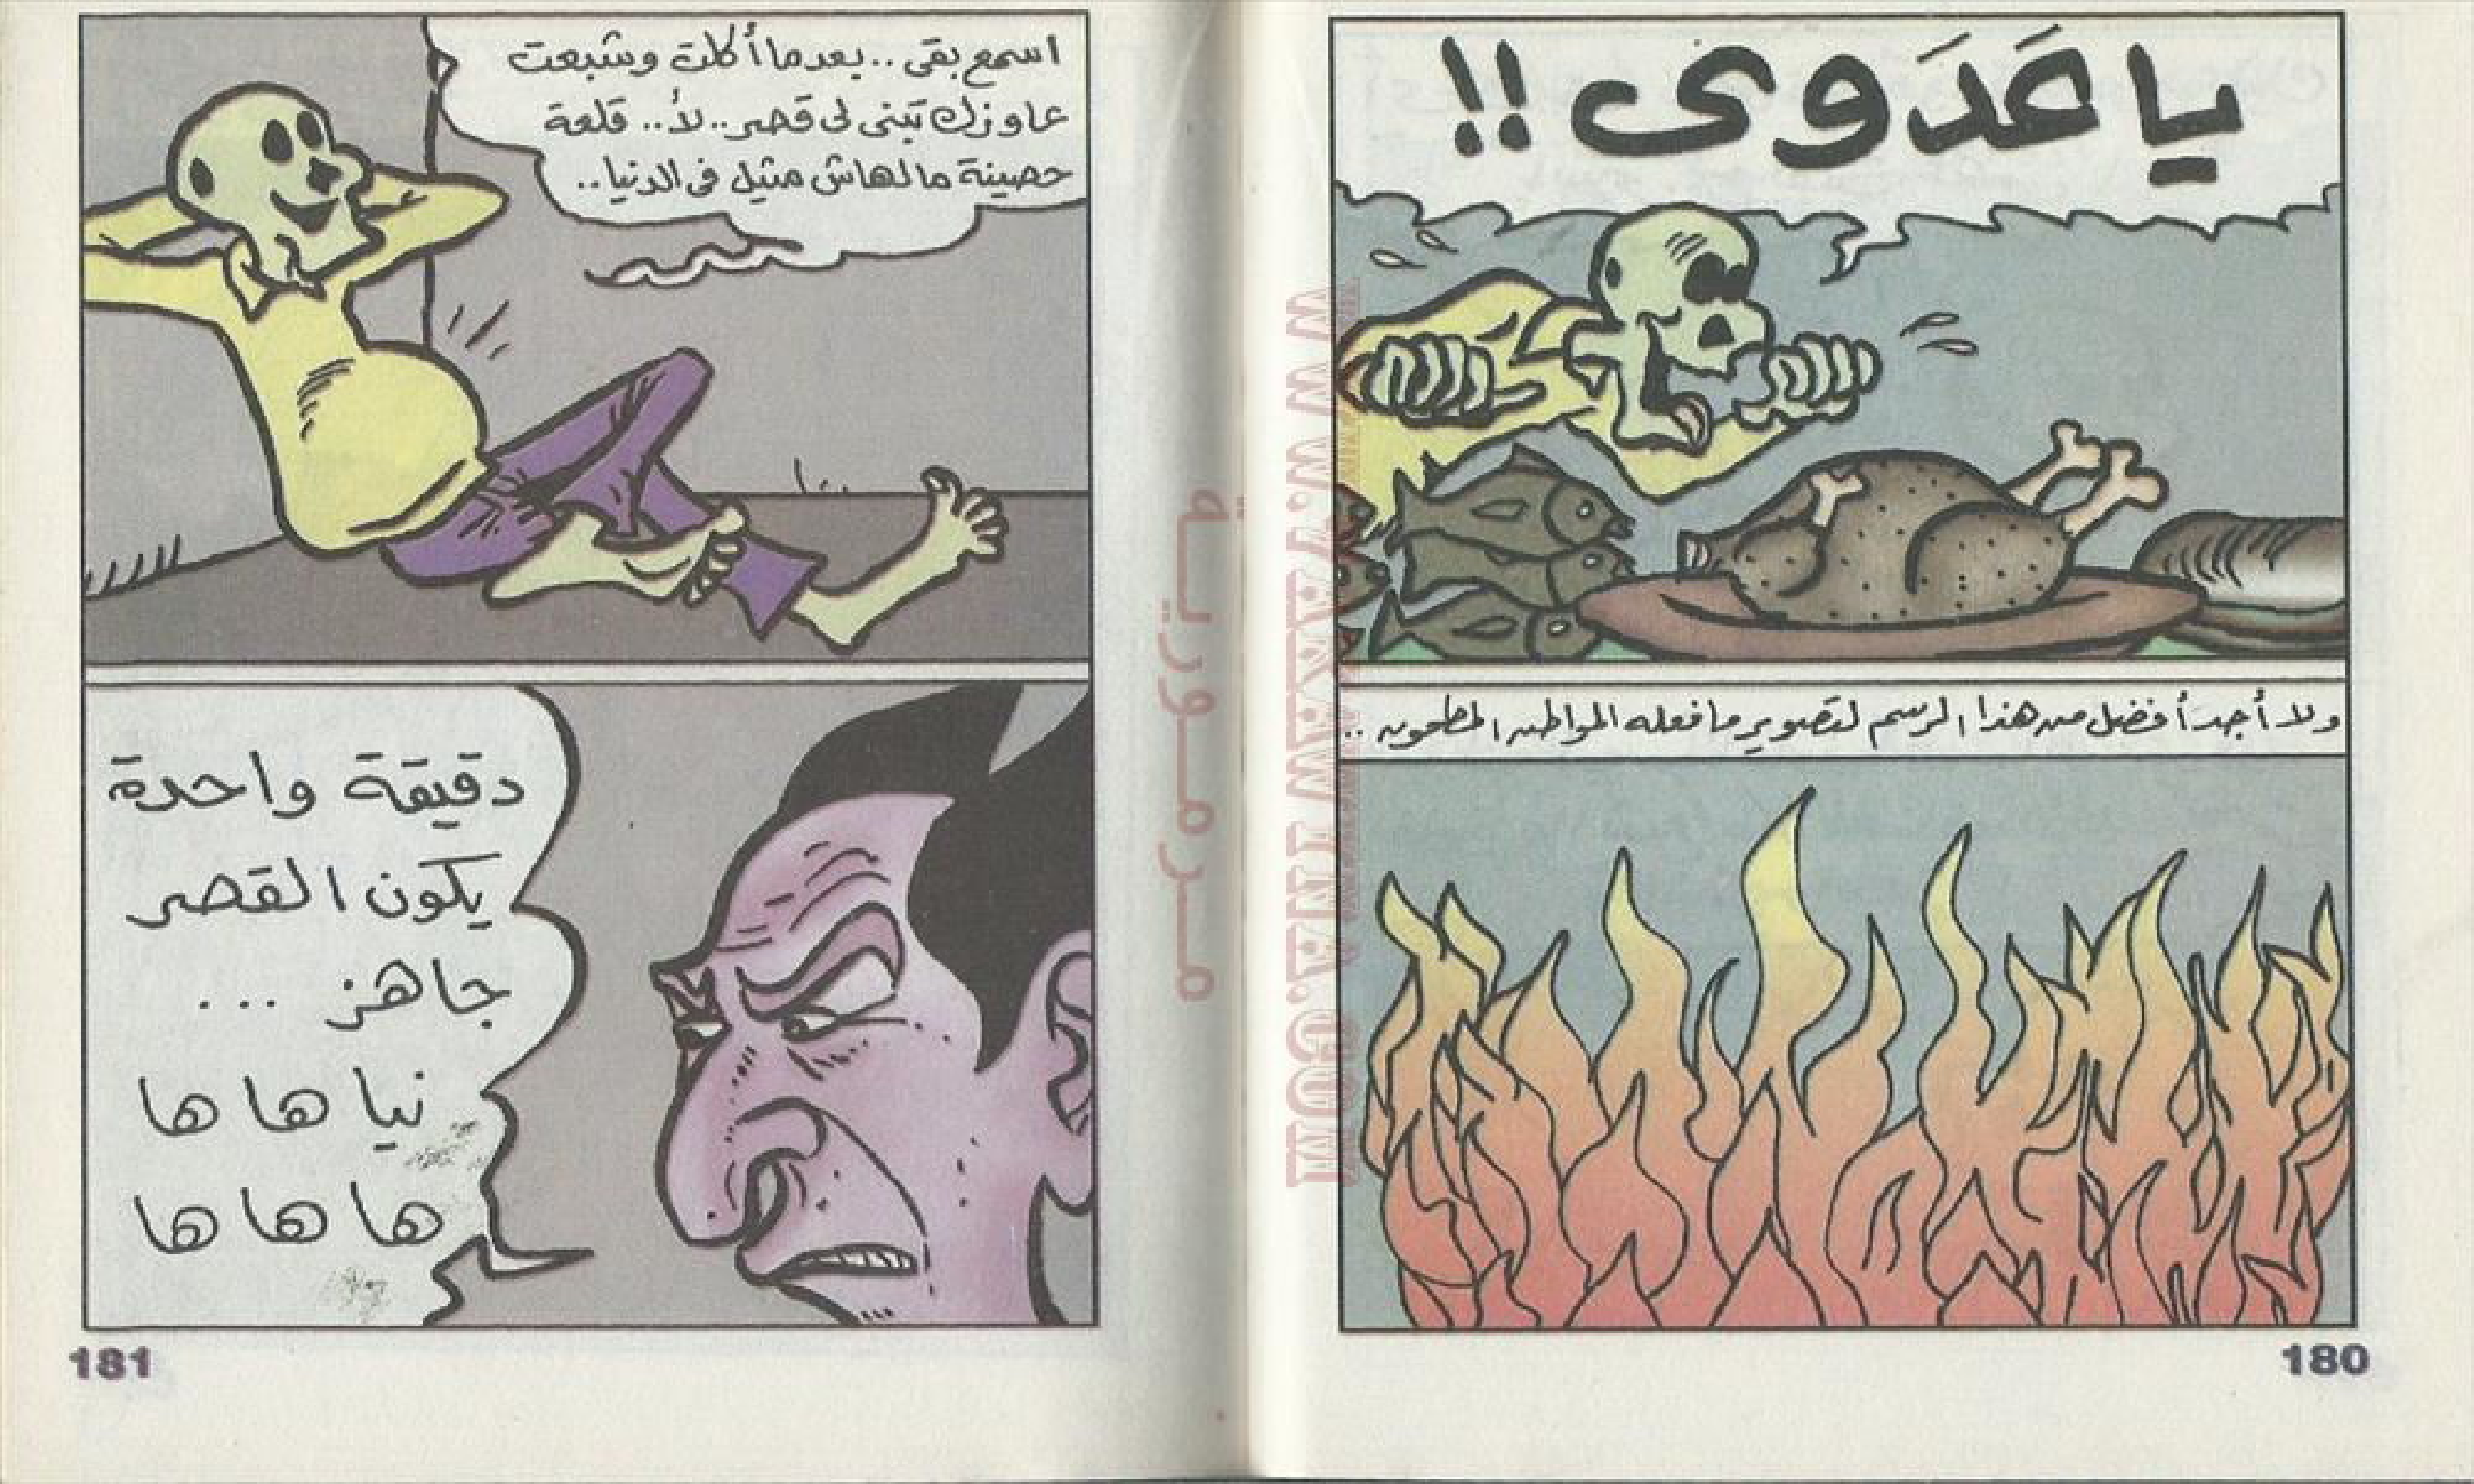 يا عَدَوى !!
ولا أجد أفضل من هذا الرسم لتصوير ما فعله المواطن المطحون ..
180
اسمع بقى .. بعد ما أكلت وشبعت
عاوزك تبنى لى قصر .. لأ .. قلعة
حصينة مالهاش مثيل فى الدنيا ..
دقيقة واحدة
يكون القصر
جاهز ...
نيا ها ها
ها ها ها
181
مرمورية
WWW.ARABLIONZ.COM